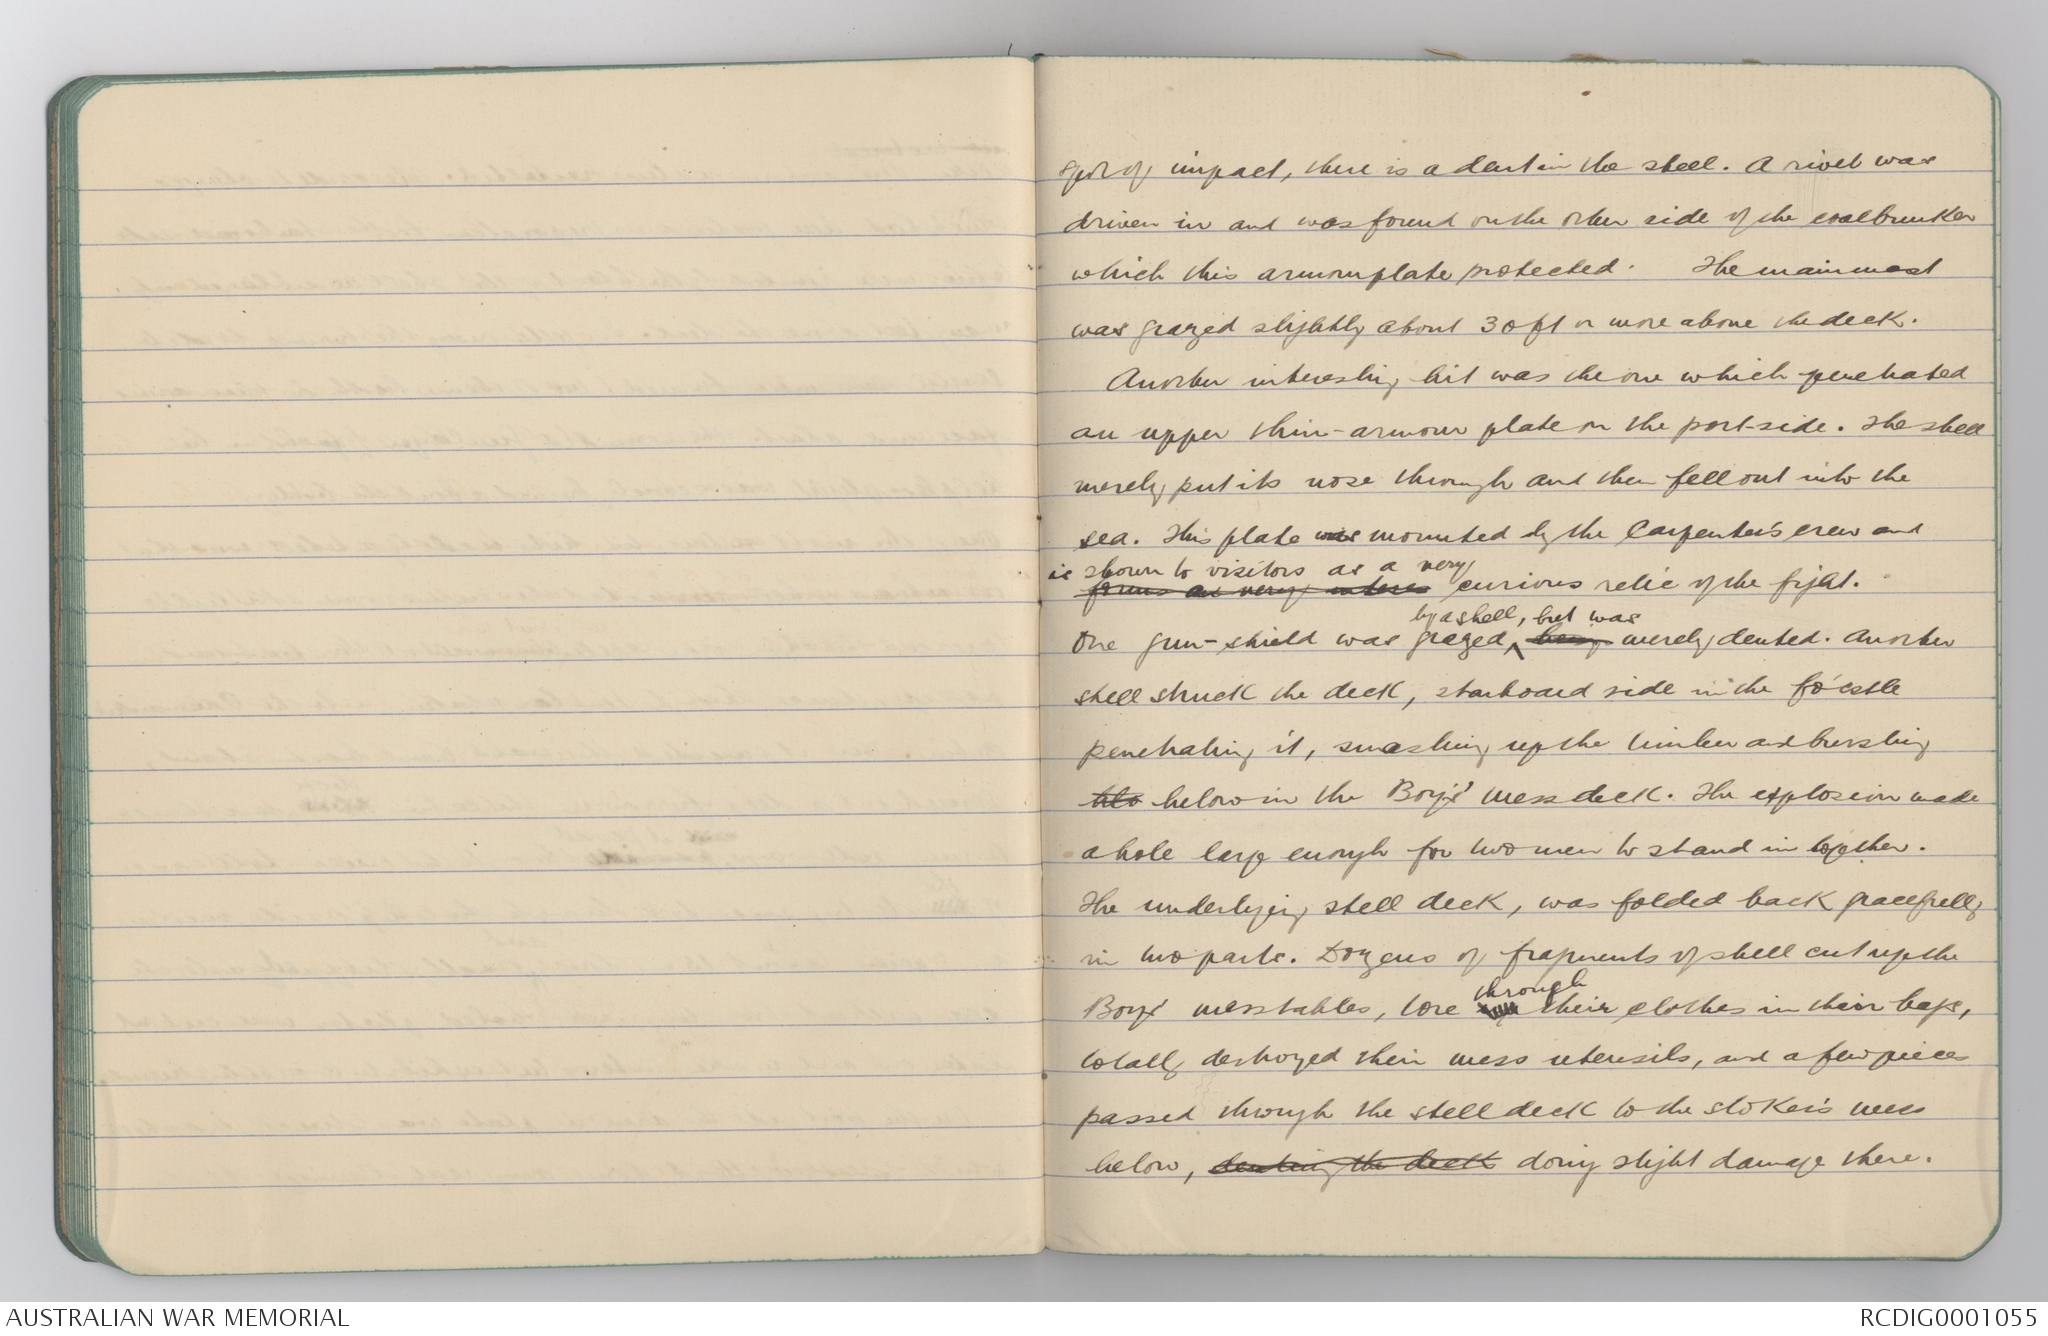 spot of impact, there is a dent in the steel. A rivet was
driven in and was found on the other side of the coalbunker
which this armourplate protected. The mainmast
was grazed slightly about 30 ft or more above the deck.
Another interesting hit was the one which penetrated
an upper thin-armour plate on the port-side. The shell
merely put its nose through and then fell out into the
sea. This plate was mounted by the Carpenter's crew and
is shown to visitors as a very
forms an very interes curious relic of the fight.
by a shell, but was
One gun-shield was grazed, being merely dented. Another
shell struck the deck, starboard side in the fo'cstle
penetrating it, smashing up the timber and bursting
below in the Boys' mess deck. The explosion made
a hole large enough for two men to stand in together.
The underlying steel deck, was folded back gracefully
in two parts. Dozens of fragments of shell cut up the
through
Boys' messtables, tore their clothes in their bags,
totally destroyed their mess utensils, and a few pieces
passed through the steel deck to the stoker's mess
below, denting the deck doing slight damage there.
AUSTRALIAN WAR MEMORIAL
RCDIG0001055